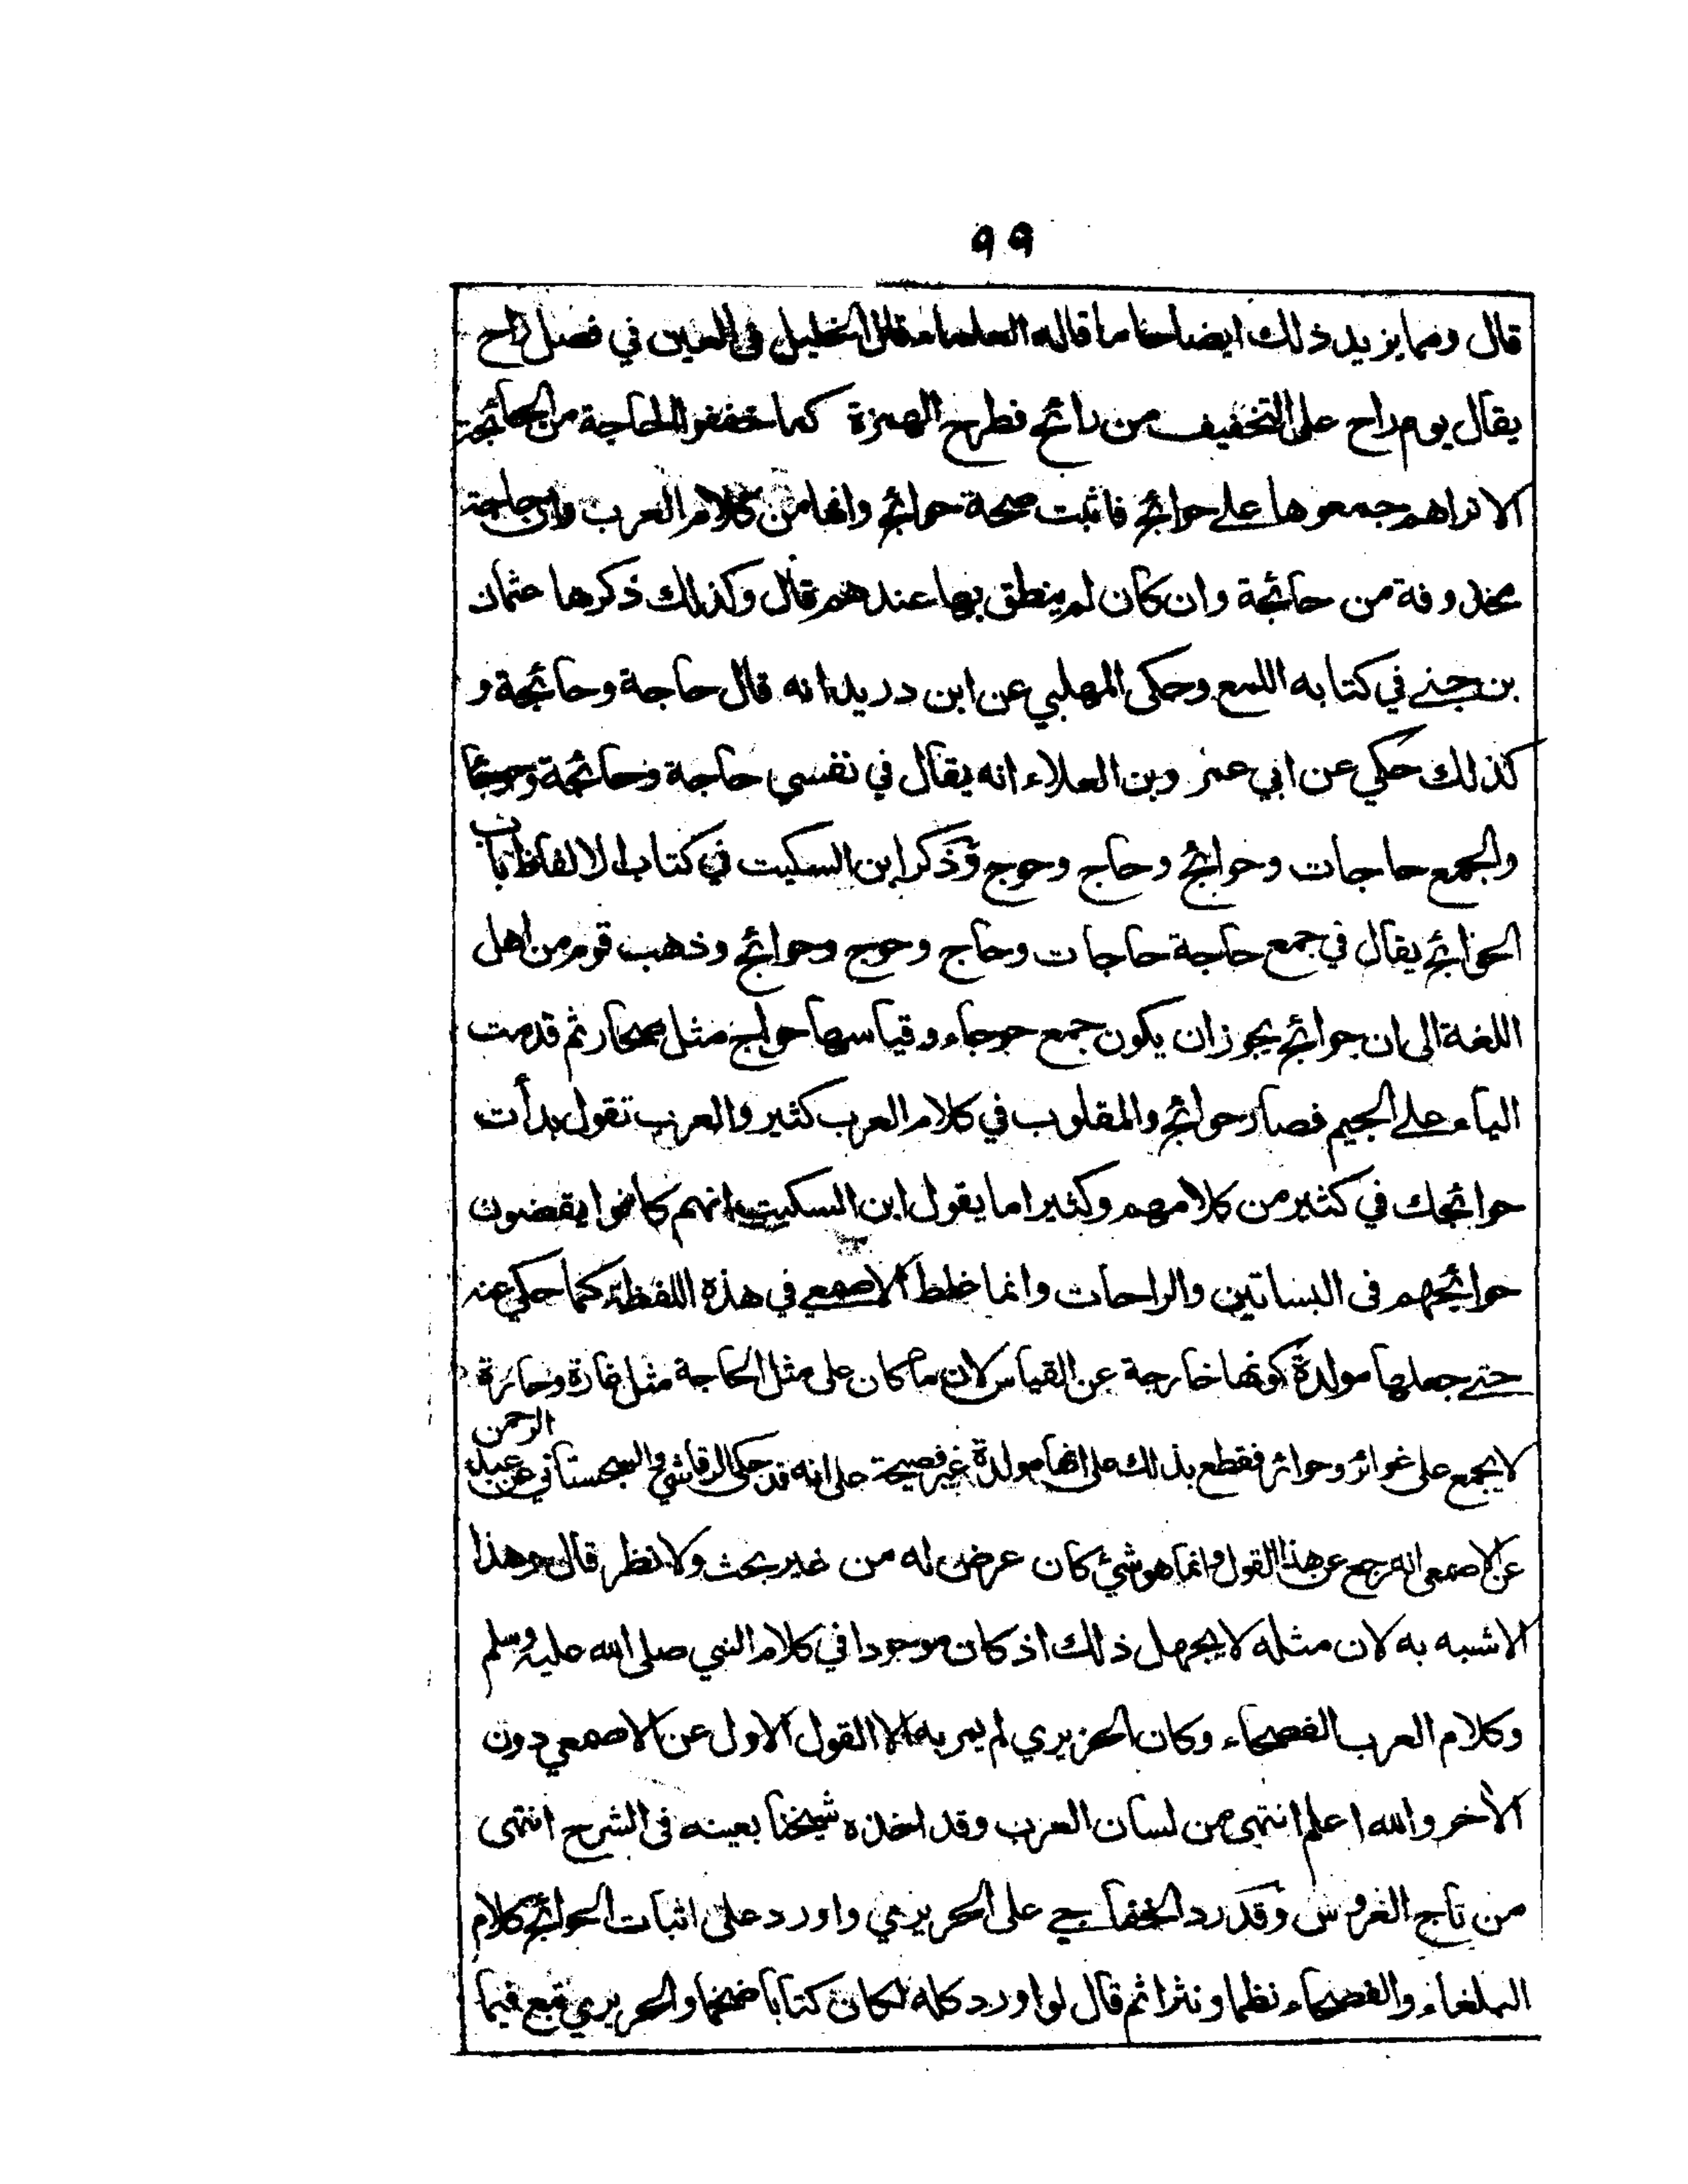 ٩٩
قال ومما يزيد ذلك ايضاحا ما قاله العلماء قال الخليل في العين في فصل راح
يقال يوم راح على التخفيف من رائح فطرح الهمزة كما خففوا الحاجة من الحائجة
الا تراهم جمعوها على حوائج فاثبت صحة حوائج وانها من كلام العرب وان حاجة
محذوفة من حائجة وان كان لم ينطق بها عندهم قال وكذلك ذكرها عثمان
بن جني في كتابه اللمع وحكى المهلبي عن ابن دريد انه قال حاجة وحائجة و
كذلك حكي عن ابي عمر وبن العلاء انه يقال في نفسي حاجة وحائجة وحوجا
والجمع حاجات وحوائج وحاج وحوج وذكر ابن السكيت في كتاب الالفاظ باب
الحوائج يقال في جمع حاجة حاجات وحاج وحوج وحوائج وذهب قوم من اهل
اللغة الى ان حوائج يجوز ان يكون جمع حوجاء وقياسها حواج مثل صحار ثم قدمت
الياء على الجيم فصار حوائج والمقلوب في كلام العرب كثير والعرب تقول بدأت
حوائجك في كثير من كلامهم وكثيرا ما يقول ابن السكيت انهم كانوا يقضون
حوائجهم في البساتين والراحات وانما غلط الاصمعي في هذه اللفظة كما حكي عنه
حتى جعلها مولدة كونها خارجة عن القياس لان ما كان على مثل الحاجة مثل غارة وحارة
لا يجمع على غوائر وحوائر فقطع بذلك على انها مولدة غير فصيحة على انه قد حكى الرقاشي والسجستاني عن عبد الرحمن
عن الاصمعي انه رجع عن هذا القول وانما هو شيء كان عرض له من غير بحث ولا نظر قال وهذا
الاشبه به لان مثله لا يجهل ذلك اذ كان موجودا في كلام النبي صلى الله عليه وسلم
وكلام العرب الفصحاء وكان الحريري لم يمر به الا القول الاول عن الاصمعي دون
الأخر والله اعلم انتهى من لسان العرب وقد اخذه شيخنا بعينه في الشرح انتهى
من تاج العروس وقد رد الخفاجي على الحريري واورد على اثبات الحوائج كلام
البلغاء والفصحاء نظما ونثرا ثم قال لو اورد كله لكان كتابا ضخما والحريري تبع فيما